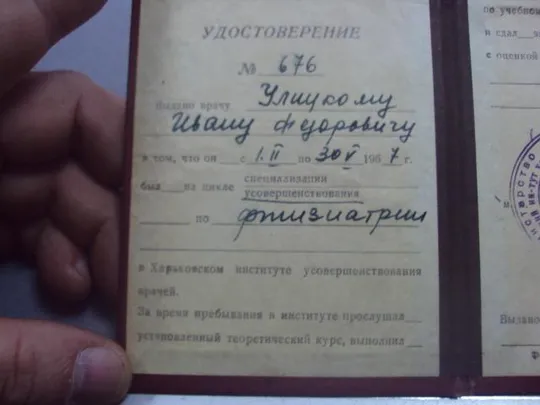 УДОСТОВЕРЕНИЕ
№ 676
Выдано врачу Улицкому
Ивану Федоровичу
в том, что он с 1.II по 30 V 1967 г.
был на цикле специализации
усовершенствования
по фтизиатрии
в Харьковском институте усовершенствования
врачей.
За время пребывания в институте прослушал
установленный теоретический курс, выполнил
по учебном
и сдал
с оценкой
Выдано